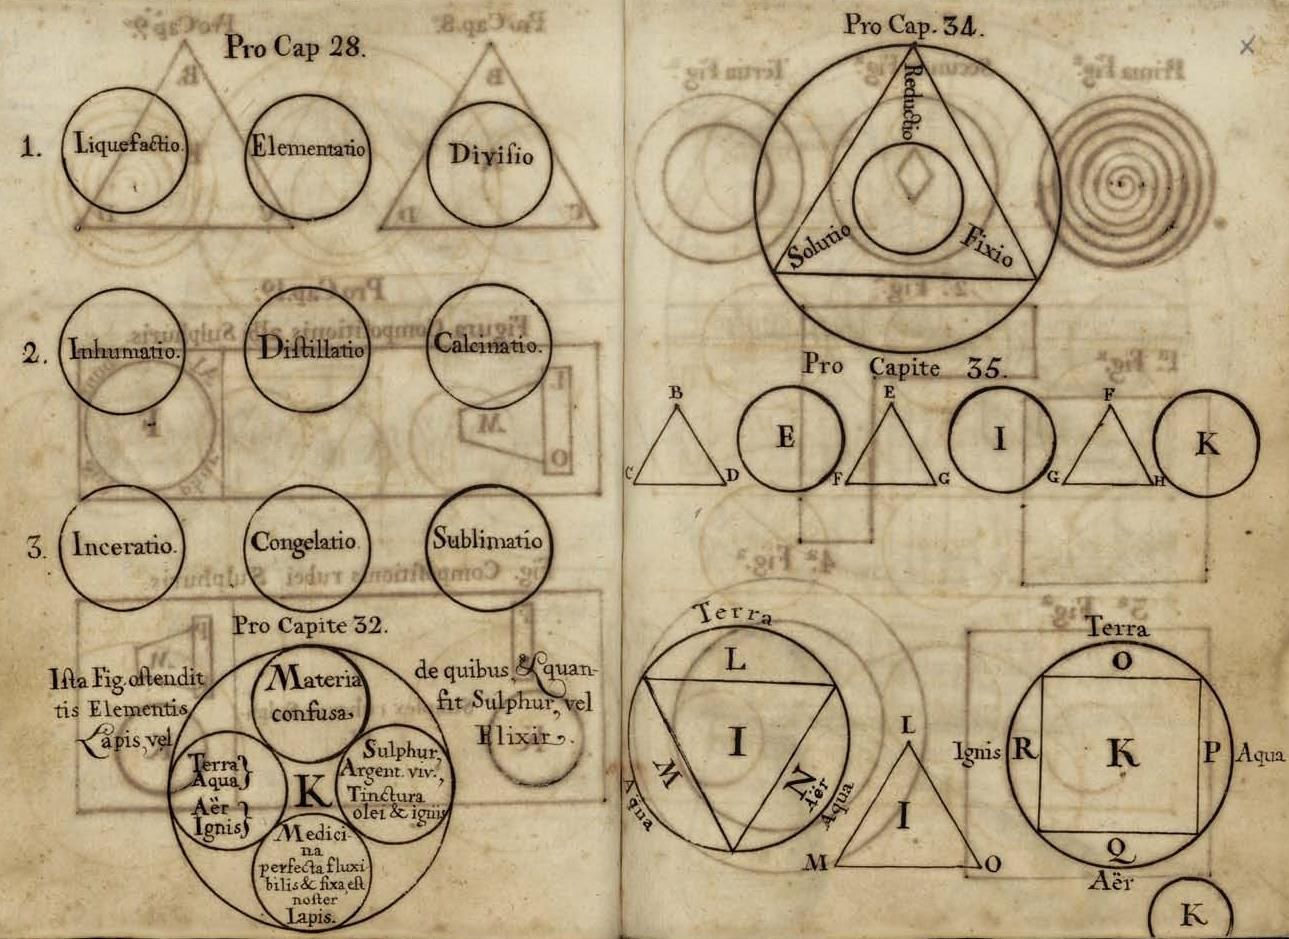 Pro Cap 28.
1. Liquefactio. Elementatio Divisio
2. Inhumatio. Distillatio Calcinatio.
3. Inceratio. Congelatio Sublimatio
Pro Capite 32.
Ista Fig. ostendit
tis Elementis
Lapis, vel
de quibus, & quan-
fit Sulphur, vel
Elixir.
Materia
confusa,
Terra
Aqua
Aër
Ignis
K
Sulphur,
Argent. viv.,
Tinctura
olei & ignis
Medici-
na
perfecta fluxi-
bilis & fixa, est
noster
Lapis.
Pro Cap. 34.
Reductio
Solutio
Fixio
Pro Capite 35.
B E F
C D E F G I G H K
Terra
L
I
M
N
Aër
Aqua
Aqua
L
I
M O
Terra
O
Ignis R K P Aqua
Q
Aër
K